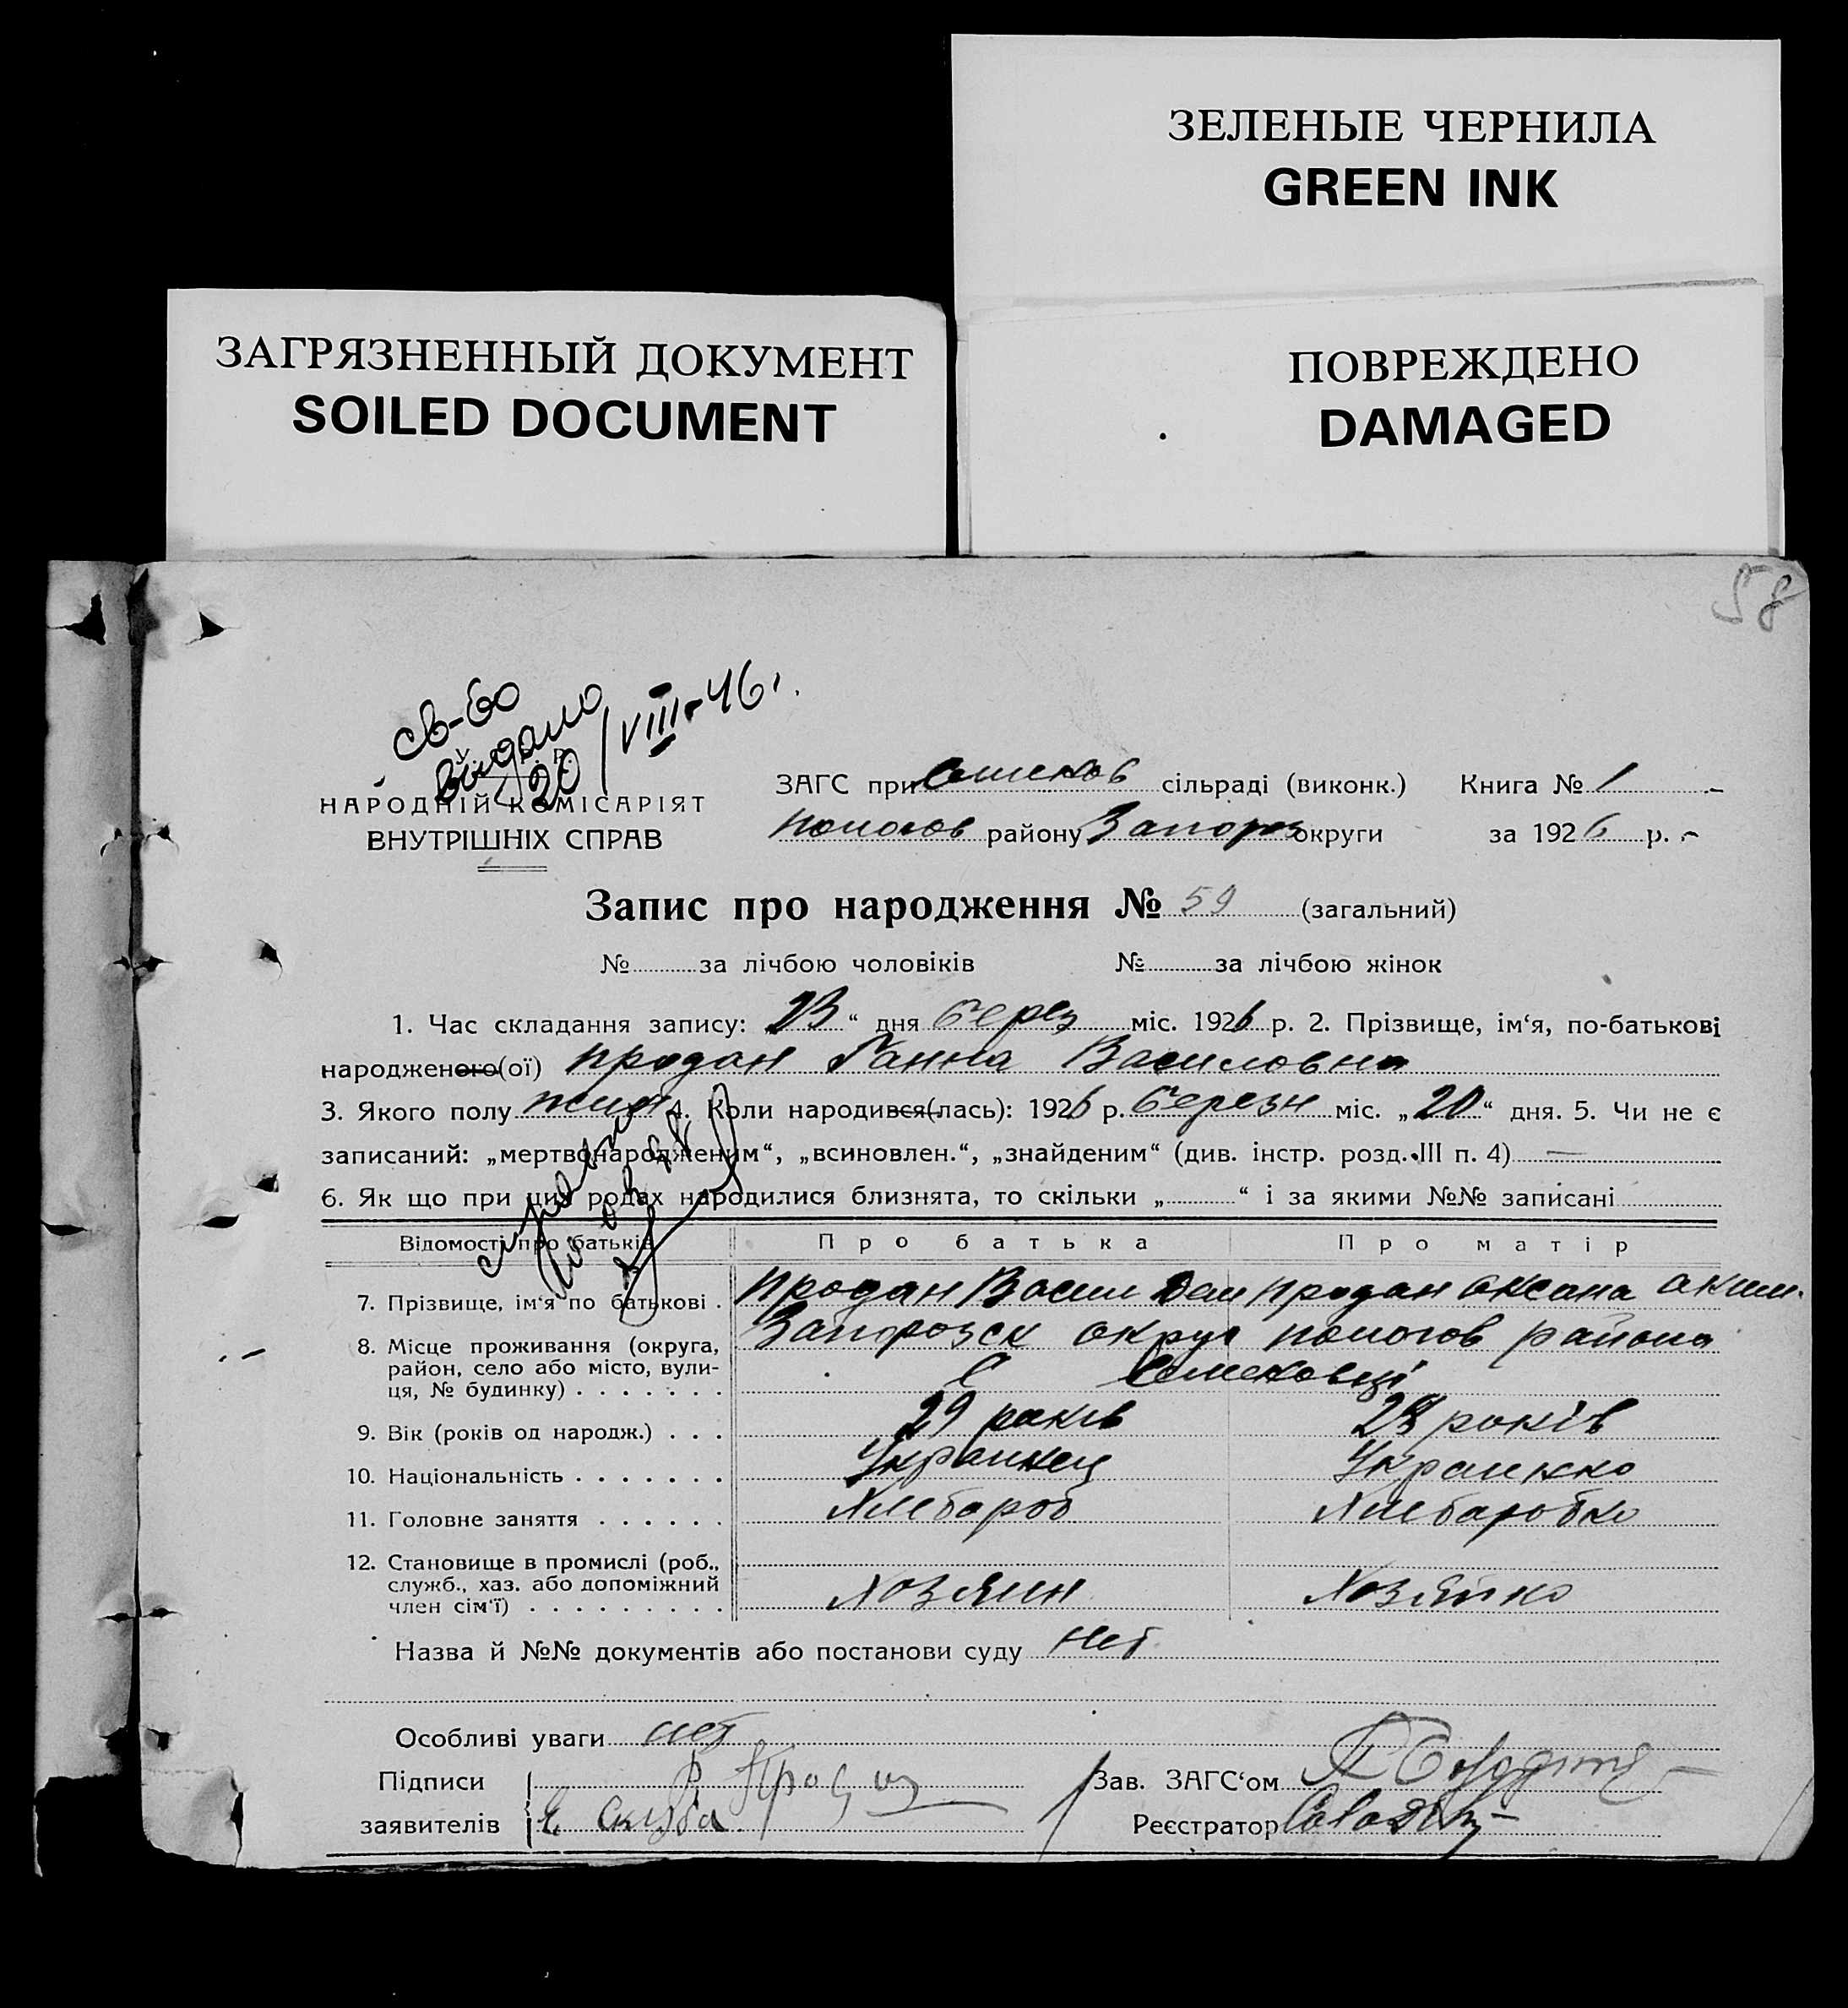 ЗЕЛЕНЫЕ ЧЕРНИЛА
GREEN INK
ЗАГРЯЗНЕННЫЙ ДОКУМЕНТ
SOILED DOCUMENT
ПОВРЕЖДЕНО
DAMAGED
58
св-во
видано
20/VIII-46г.
НАРОДНІЙ КОМІСАРІЯТ
ВНУТРІШНІХ СПРАВ
ЗАГС при сільраді (виконк.) Книга № 1
Пологов району Запорз округи за 1926 р.
Запис про народження № 59 (загальний)
№ за лічбою чоловіків № за лічбою жінок
1. Час складання запису: 23 “ дня берез міс. 1926 р. 2. Прізвище, ім‘я, по-батькові
народженого(ої) Продан Ганна Василовна
3. Якого полу жин 4. Коли народився(лась): 1926 р. березн міс. „20“ дня. 5. Чи не є
записаний: „мертвонародженим“, „всиновлен.“, „знайденим“ (див. інстр. розд. III п. 4) —
6. Як що при цих родах народилися близнята, то скільки „ “ і за якими №№ записані
Відомості про батьків Про батька Про матір
7. Прізвище, ім‘я по батькові . Продан Васил Дем Продан Оксана Аким.
8. Місце проживання (округа, Запорозск округ пологов района
район, село або місто, вули-
ця, № будинку) . . . . . . . С
9. Вік (років од народж.) . . . 29 раків 28 років
10. Національність . . . . . . . Украинец Украинка
11. Головне заняття . . . . . . Хлебароб Хлебаробка
12. Становище в промислі (роб.,
служб., хаз. або допоміжний
член сім‘ї) . . . . . . . . . Хозяин Хозяйка
Назва й №№ документів або постанови суду нет
Особливі уваги нет
Підписи Зав. ЗАГС‘ом
заявителів Реєстратор